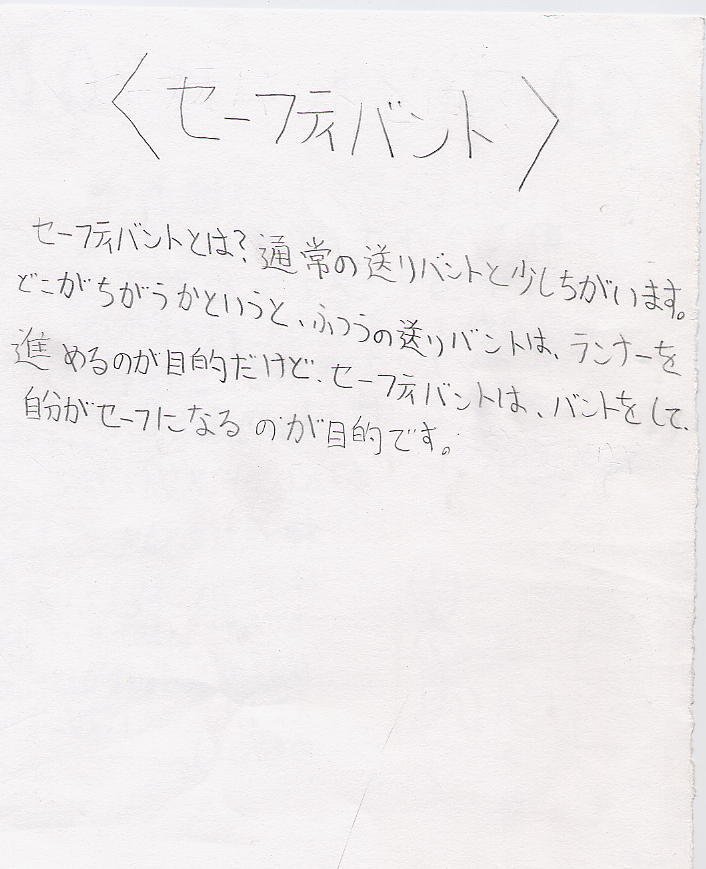 〈セーフティバント〉
セーフティバントとは?通常の送りバントと少しちがいます。
どこがちがうかというと、ふつうの送りバントは、ランナーを
進めるのが目的だけど、セーフティバントは、バントをして、
自分がセーフになるのが目的です。